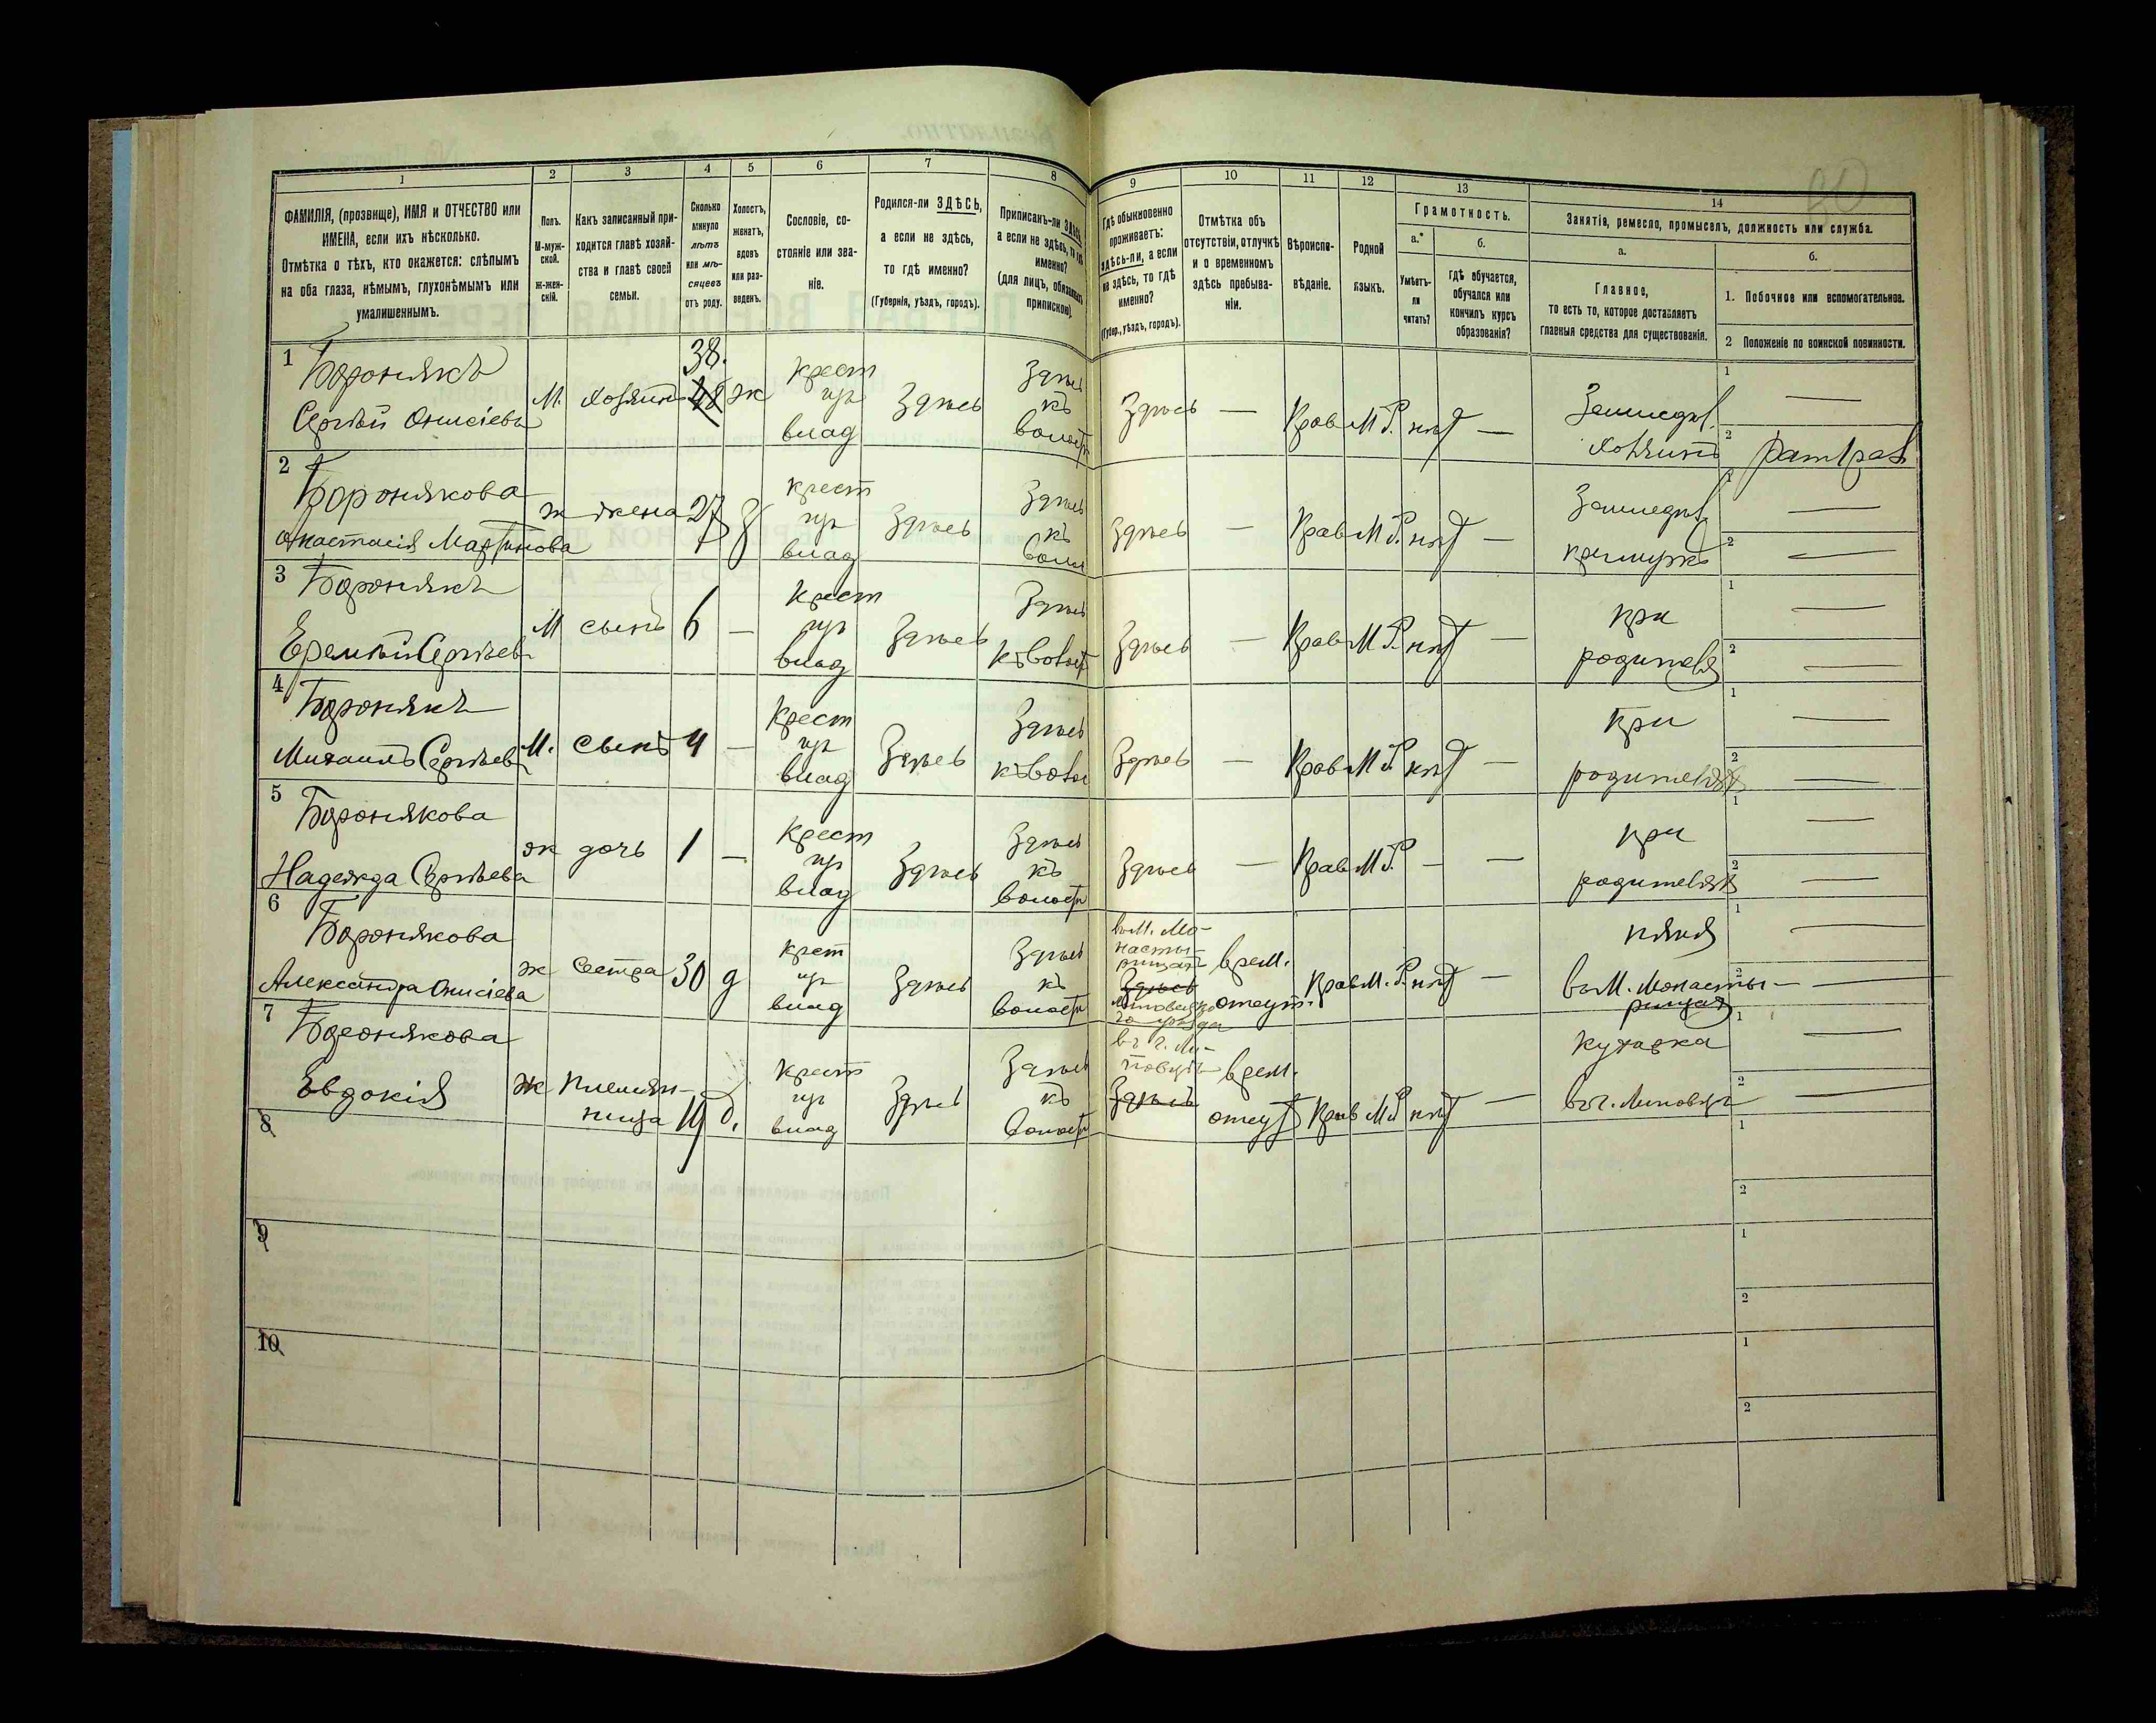 1 2 3 4 5 6 7 8 9 10 11 12 13 14
ФАМИЛІЯ, (прозвище), ИМЯ и ОТЧЕСТВО или
ИМЕНА, если ихъ нѣсколько.
Отмѣтка о тѣхъ, кто окажется: слѣпымъ
на оба глаза, нѣмымъ, глухонѣмымъ или
умалишеннымъ.
Полъ.
М-муж-
ской.
Ж-жен-
скій.
Какъ записанный при-
ходится главѣ хозяй-
ства и главѣ своей
семьи.
Сколько
минуло
лѣтъ
или мѣ-
сяцевъ
отъ роду.
Холостъ,
женатъ,
вдовъ
или раз-
веденъ.
Сословіе, со-
стояніе или зва-
ніе.
Родился-ли ЗДѢСЬ,
а если не здѣсь,
то гдѣ именно?
(Губернія, уѣздъ, городъ).
Приписанъ-ли ЗДѢСЬ,
а если не здѣсь, то гдѣ
именно?
(для лицъ, обязанныхъ
припискою).
Гдѣ обыкновенно
проживаетъ:
здѣсь-ли, а если
не здѣсь, то гдѣ
именно?
(Губер., уѣздъ, городъ).
Отмѣтка объ
отсутствіи, отлучкѣ
и о временномъ
здѣсь пребыва-
ніи.
Вѣроиспо-
вѣданіе.
Родной
языкъ.
Грамотность.
а.*
Умѣетъ-
ли
читать?
б.
гдѣ обучается,
обучался или
кончилъ курсъ
образованія?
Занятія, ремесло, промыселъ, должность или служба.
а.
Главное,
то есть то, которое доставляетъ
главныя средства для существованія.
б.
1. Побочное или вспомогательное.
2 Положеніе по воинской повинности.
1 Бороняkъ
Сергѣй Онисіевъ
М. хозяинъ 38. 48 ж
крест
изъ
влад
Здѣсь
Здѣсь
къ
волост
Здѣсь — Прав М.Р. нѣт —
Земледѣл.
хозяинъ
1 —
2
2 Боронякова
Анастасія Мартинова
ж жена 27 з
крест
изъ
влад
Здѣсь
Здѣсь
къ
воло
Здѣсь — Прав М.Р. нѣт —
Земледѣл.
1 —
2 —
3 Боронякъ
Еремѣй Сергѣевъ
М сынъ 6 —
Крест
изъ
влад
Здѣсь
Здѣсь
къ волост
Здѣсь — Прав М.Р. нѣт —
при
родителя
1 —
2 —
4 Боронякъ
Михаилъ Сергѣевъ
М. сынъ 4 —
Крест
изъ
влад
Здѣсь
Здѣсь
къ волос
Здѣсь — Прав М.Р. нѣт —
при
родителях
1 —
2 —
5 Боронякова
Надежда Сергѣева
ж дочь 1 —
Крест
изъ
влад
Здѣсь
Здѣсь
къ
волост
Здѣсь — Прав М.Р. — —
при
родителях
1 —
2 —
6 Боронякова
Александра Онисіева
ж сестра 30 д
крест
изъ
влад
Здѣсь
Здѣсь
къ
волост
въ М. Мо-
насты-
рищах
Здѣсь
Липовецко
го уѣзда
врем.
отсут.
Прав М.Р. нѣт —
няня
въ М. Монасты-
рищах
1 —
2 —
7 Боронякова
Евдокія
ж племян-
ница 19 д.
Крест
изъ
влад
Здѣсь
Здѣсь
къ
волост
въ г. Ли-
повцѣ
Здѣсь
врем.
отсут
Прав М.Р нѣт —
кухарка
въ г. Липовцѣ
1 —
2 —
8
1
2
9
1
2
10
1
2